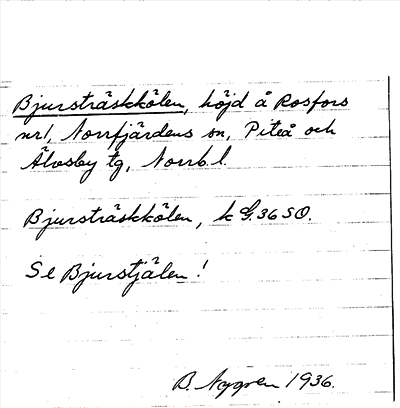 Bjursträskkölen, höjd å Rosfors
nr1, Norrfjärdens sn, Piteå och
Älvsby tg, Norrb. l.
Bjursträskkölen, k G. 36 SO.
Se Bjurstjälen!
B. Nygren 1936.